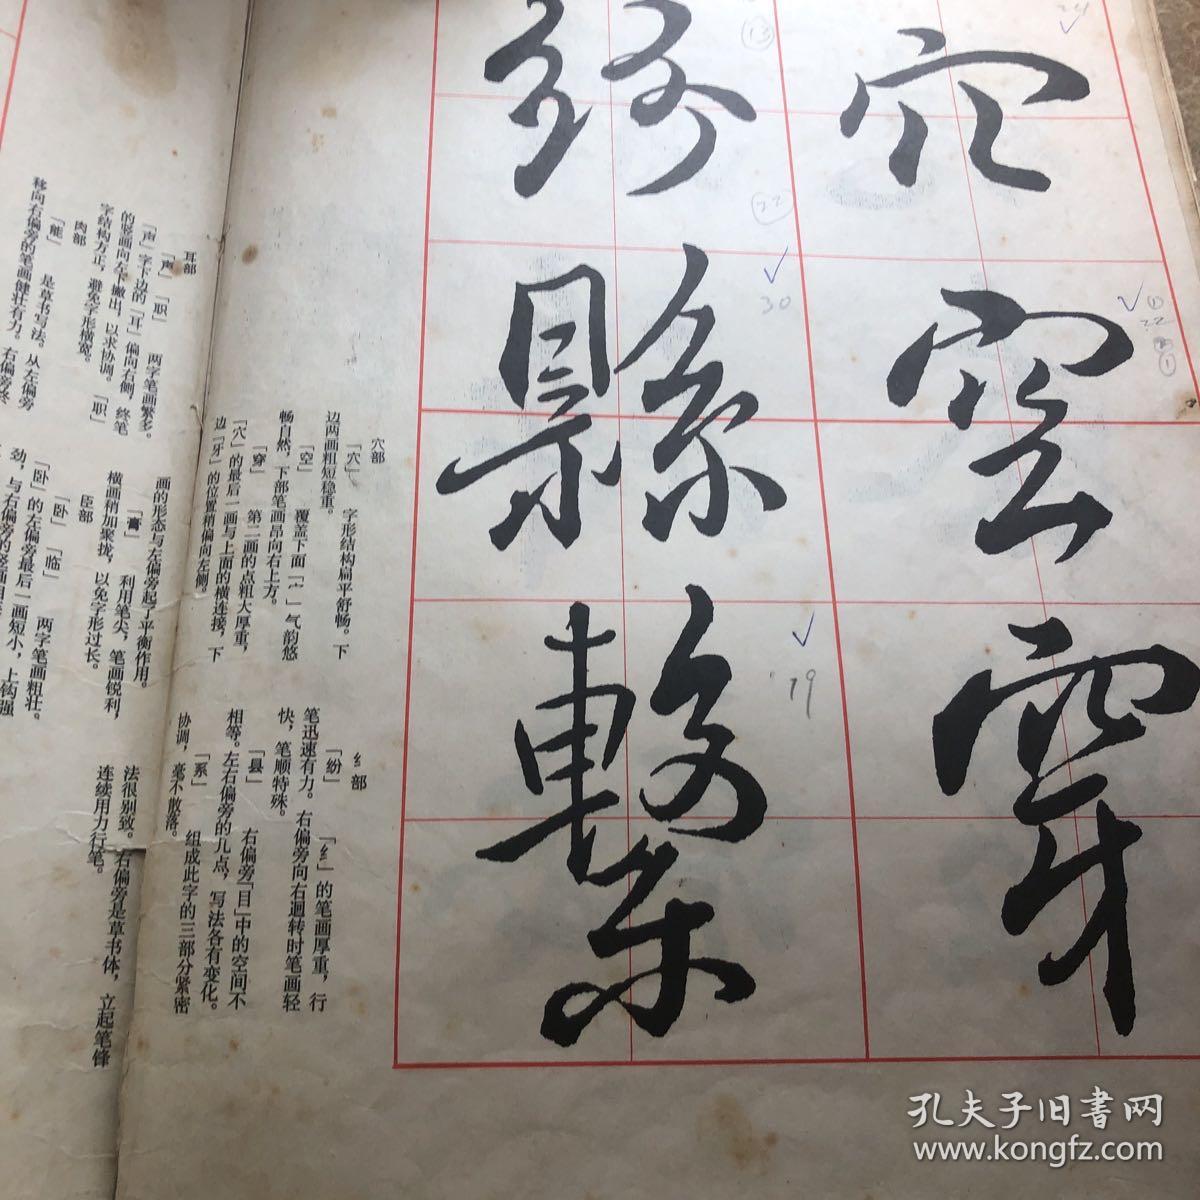 穴
空
穿
紛
縣
繫
24
13
22
30
22
19
穴部
「穴」 字形结构扁平舒畅。下
边两画粗短稳重。
「空」 覆盖下面「宀」气韵悠
畅自然，下部笔画昂向右上方。
「穿」 第二画的点粗大厚重，
「穴」的最后一画与上面的横连接，下
边「牙」的位置稍偏向左侧。
纟部
「纷」 「纟」的笔画厚重，行
笔迅速有力。右偏旁向右迴转时笔画轻
快，笔顺特殊。
「县」 右偏旁「目」中的空间不
相等。左右偏旁的几点，写法各有变化。
「系」 组成此字的三部分紧密
协调，毫不散落。
耳部
「声」「职」 两字笔画繁多。
「声」字下边的「耳」偏向右侧，终笔
的竖画向左下撇出，以求协调。「职」
字结构方正，避免字形横宽。
肉部
「能」 是草书写法。从左偏旁
移向右偏旁的笔画健壮有力。右偏旁终
画的形态与左偏旁起了平衡作用。
「膏」 利用笔尖，笔画锐利，
横画稍加聚拢，以免字形过长。
臣部
「卧」「临」 两字笔画粗壮。
「卧」的左偏旁最后一画短小，上钩强
劲，与右偏旁的竖画相连
法很别致。右偏旁是草书体，立起笔锋
连续用力行笔。
孔夫子旧书网
www.kongfz.com